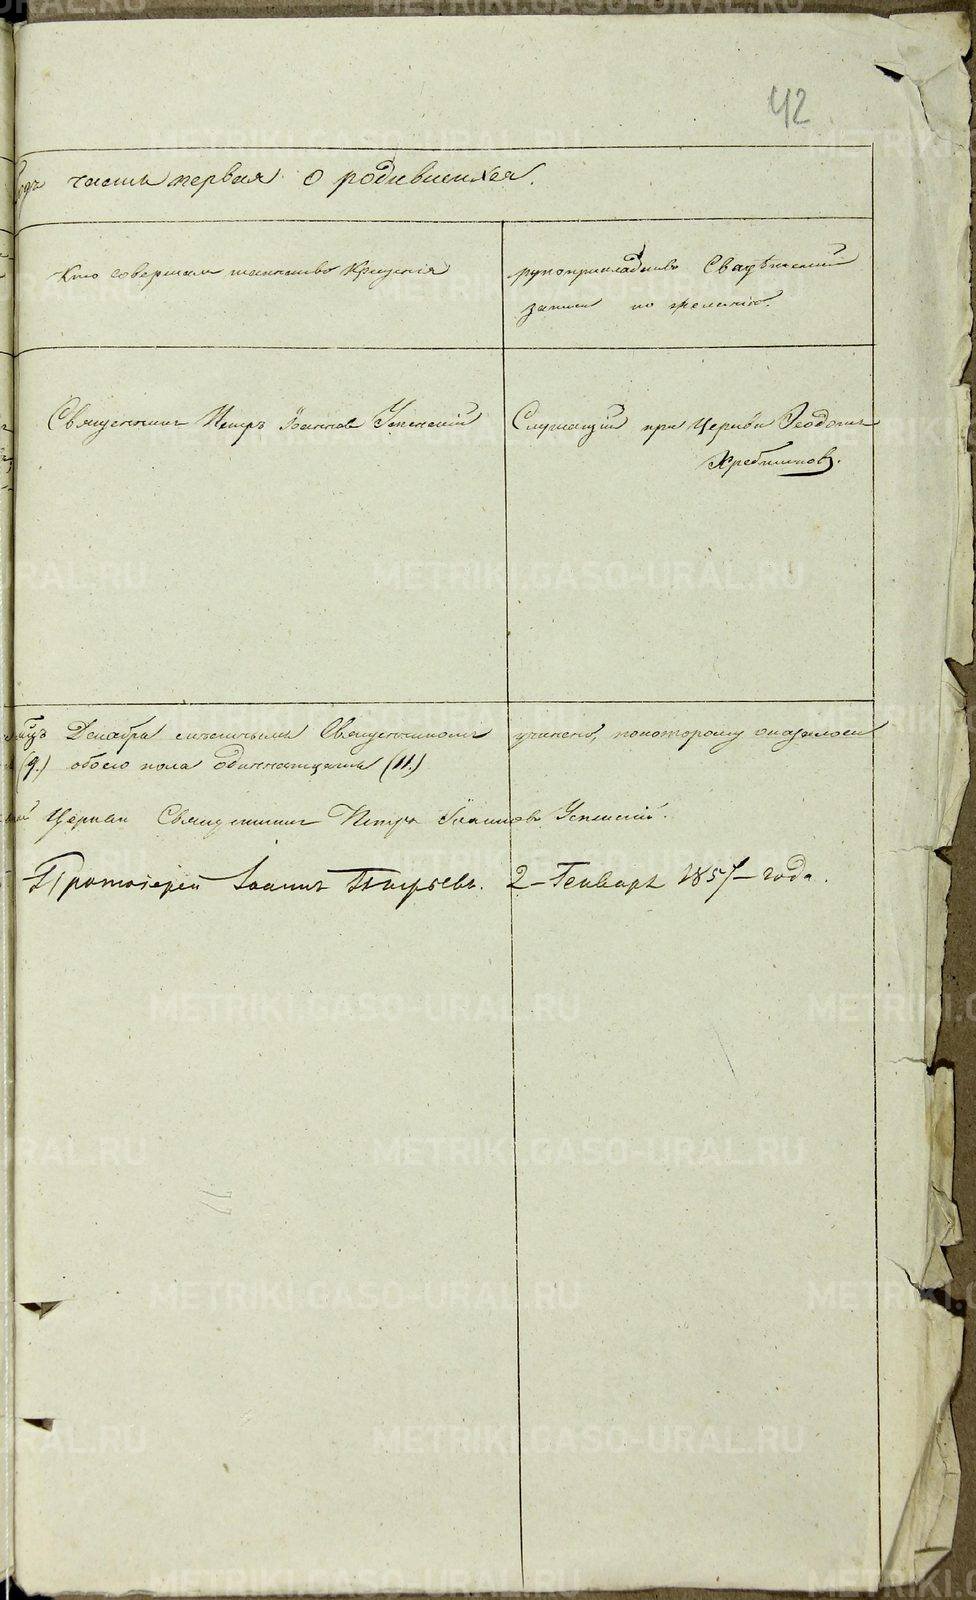 42
Годъ часть первая о родившихся.
Кто совершалъ таинство Крещенія
рукоприкладство Свидѣтелей
записи по желанію.
Священникъ Петръ Іоанновъ Успенскій
Служащій при Церкви Феодотъ
Декабрь мѣстнымъ Священникомъ учинено, покоторому оказалось
(9.) обоего пола одиннатцать (11.)
Церкви Священникъ Петръ Іоанновъ Успенскій.
Протоіерей Іоаннъ 2 Генваря 1857 года.
METRIKI.GASO-URAL.RU